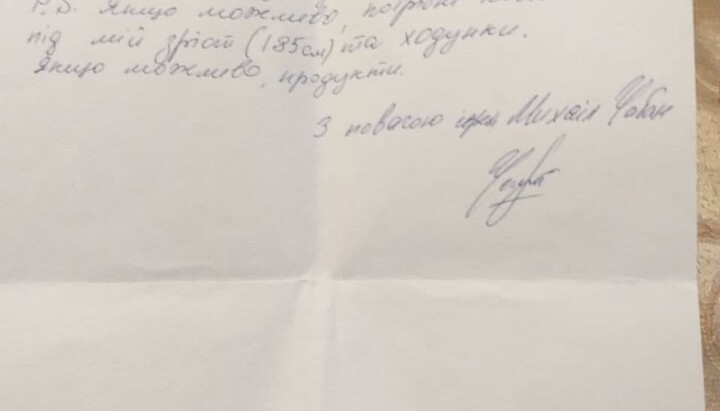 P.S. Якщо можливо, потрібні
під мій зріст (185см) та ходунки.
Якщо можливо, продукти.
З повагою Михаіл Чобан